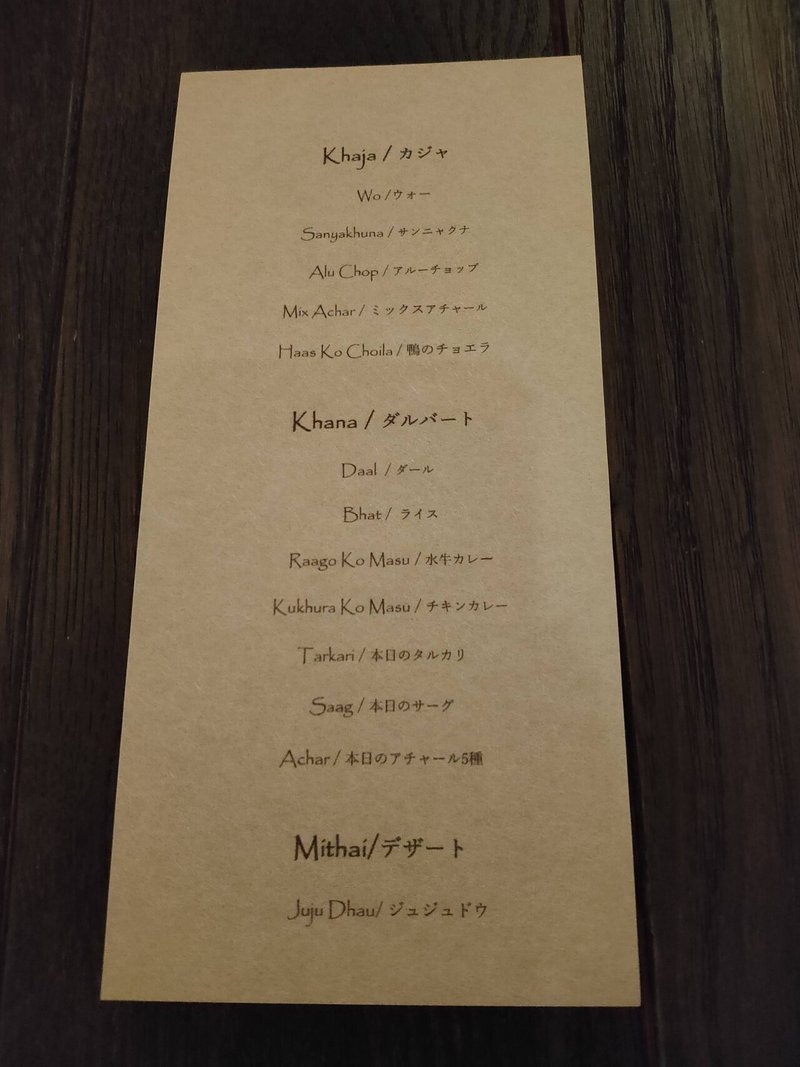 Khaja / カジャ
Wo /ウォー
Sanyakhuna / サンニャクナ
Alu Chop / アルーチョップ
Mix Achar / ミックスアチャール
Haas Ko Choila / 鴨のチョエラ
Khana / ダルバート
Daal / ダール
Bhat / ライス
Raago Ko Masu / 水牛カレー
Kukhura Ko Masu / チキンカレー
Tarkari / 本日のタルカリ
Saag / 本日のサーグ
Achar / 本日のアチャール5種
Mithai/デザート
Juju Dhau/ ジュジュドウ